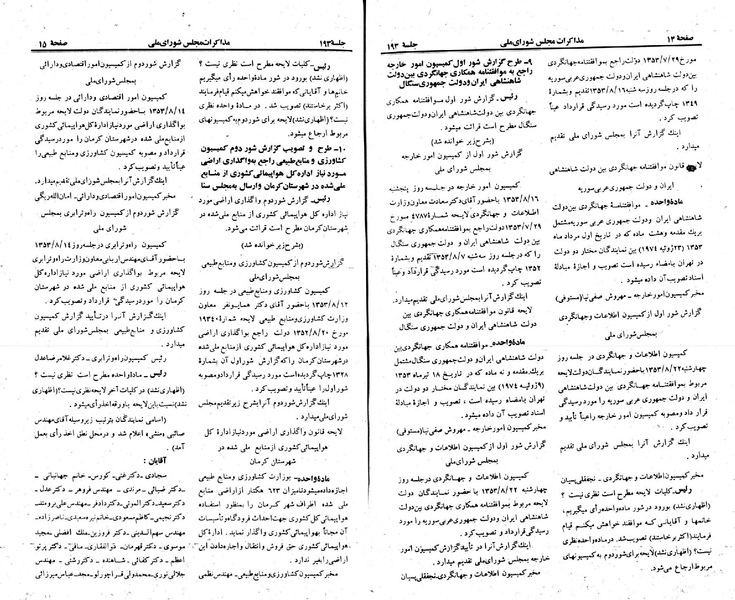 صفحه ۱۴
مذاکرات مجلس شورای ملی
جلسه ۱۹۳
مورخ ۱۳۵۳/۷/۲۹ دولت راجع به موافقتنامه جهانگردی
بین دولت شاهنشاهی ایران و دولت جمهوری عربی سوریه
را که در جلسه روز سه شنبه
۱۳۴۹ چاپ گردیده است مورد رسیدگی قرارداد عیناً
تصویب کرد.
اینک گزارش آنرا بمجلس شورای ملی تقدیم
میدارد.
لایحه قانون موافقتنامه جهانگردی بین دولت شاهنشاهی
ایران و دولت جمهوری عربی سوریه
مادهٔ واحده ـ موافقتنامهٔ جهانگردی بین دولت
شاهنشاهی ایران و دولت جمهوری عربی سوریه مشتمل
بریک مقدمه وهشت ماده که در تاریخ اول مرداد ماه
۱۳۵۳ (۲۳ ژوئیه ۱۹۷۴) بین نمایندگان مختار دو دولت
در تهران بامضاء رسیده است تصویب و اجازهٔ مبادلهٔ
اسناد تصویب آن داده میشود.
مخبر کمیسیون امور خارجه ـ مهروش صفی نیا (مستوفی)
گزارش شور اول از کمیسیون اطلاعات وجهانگردی
بمجلس شورای ملی
کمیسیون اطلاعات و جهانگردی در جلسه روز
چهارشنبه ۱۳۵۳/۸/۲۲ با حضور نمایندگان دولت لایحه
مربوط بموافقتنامه جهانگردی بین دولت شاهنشاهی
ایران و دولت جمهوری عربی سوریه را مورد رسیدگی
قرارداد ومصوبه کمیسیون امور خارجه راعیناً تأیید و
تصویب کرد.
اینک گزارش آنرا بمجلس شورای ملی تقدیم
میدارد.
مخبر کمیسیون اطلاعات و جهانگردی ـ نجفقلی پسیان
رئیس ـ کلیات لایحه مطرح است نظری نیست؟
(اظهاری نشد) بورود در شور ماده واحده رأی میگیریم،
خانمها و آقایانی که موافقند خواهش میکنم قیام
فرمایند (اکثر برخاستند) تصویب شد. درماده واحده نظری
نیست؟ (اظهاری نشد) لایحه برای شور دوم به کمیسیونهای
مربوط ارجاع میشود.
۹ـ طرح گزارش شور اول کمیسیون امور خارجه
راجع به موافقتنامه همکاری جهانگردی بین دولت
شاهنشاهی ایران و دولت جمهوری سنگال
رئیس ـ گزارش شور اول موافقتنامه همکاری
جهانگردی بین دولت شاهنشاهی ایران ودولت جمهوری
سنگال مطرح است قرائت میشود.
(بشرح زیر خوانده شد)
گزارش شور اول از کمیسیون امور خارجه
بمجلس شورای ملی
کمیسیون امور خارجه در جلسه روز پنجشنبه
۱۳۵۳/۸/۱۶ باحضور آقای دکتر سعادت معاون وزارت
اطلاعات و جهانگردی لایحه شمارهٔ ۴۷۸۷ مورخ
۱۳۵۳/۷/۲۹ دولت راجع بموافقتنامه همکاری جهانگردی
بین دولت شاهنشاهی ایران و دولت جمهوری سنگال
را که در جلسه روز سه شنبه ۱۳۵۳/۸/۷ تقدیم و بشمارهٔ
۱۳۵۲ چاپ گردیده است مورد رسیدگی قرارداد و عیناً
تصویب کرد.
اینک گزارش آنرا بمجلس شورای ملی تقدیم میدارد.
لایحه قانون موافقتنامه همکاری جهانگردی بین
دولت شاهنشاهی ایران و دولت جمهوری سنگال
مادهٔ واحده ـ موافقتنامه همکاری جهانگردی بین
دولت شاهنشاهی ایران و دولت جمهوری سنگال مشتمل بر
یک مقدمه و نه ماده که در تاریخ ۱۸ تیرماه ۱۳۵۳
(۹ ژوئیه ۱۹۷۴) بین نمایندگان مختار دو دولت در
تهران بامضاء رسیده است تصویب و اجازهٔ مبادلهٔ
اسناد تصویب آن داده میشود.
مخبر کمیسیون امور خارجه ـ مهروش صفی نیا (مستوفی)
گزارش شور اول از کمیسیون اطلاعات و جهانگردی
بمجلس شورای ملی
کمیسیون اطلاعات و جهانگردی در جلسه روز
چهارشنبه ۱۳۵۳/۸/۲۲ با حضور نمایندگان دولت
لایحه مربوط بموافقتنامه جهانگردی بین دولت
شاهنشاهی ایران و دولت جمهوری عربی سوریه را مورد
رسیدگی قرارداد و مصوبه کمیسیون امور خارجه را عیناً تأیید و
تصویب کرد.
اینک گزارش آنرا در تأیید گزارش کمیسیون امور
خارجه بمجلس شورای ملی تقدیم میدارد.
مخبر کمیسیون اطلاعات و جهانگردی ـ نجفقلی پسیان
جلسه ۱۹۳
مذاکرات مجلس شورای ملی
صفحه ۱۵
رئیس ـ کلیات لایحه مطرح است نظری نیست؟
(اظهاری نشد) بورود در شور ماده واحده رأی میگیریم
خانمها و آقایانی که موافقند خواهش میکنم قیام فرمایند
(اکثر برخاستند) تصویب شد. در مادهٔ واحده نظری
نیست؟ (اظهاری نشد) لایحه برای شور دوم به کمیسیونهای
مربوط ارجاع میشود.
۱۰ـ طرح و تصویب گزارش شور دوم کمیسیون
کشاورزی و منابع طبیعی راجع به واگذاری اراضی
مورد نیاز ادارهٔ کل هواپیمائی کشوری از منابع
ملی شده در شهرستان کرمان و ارسال به مجلس سنا
رئیس ـ گزارش شور دوم واگذاری اراضی مورد
نیاز ادارهٔ کل هواپیمائی کشوری از منابع ملی شده در
شهرستان کرمان مطرح است قرائت میشود.
(بشرح زیر خوانده شد)
گزارش شور دوم از کمیسیون کشاورزی و منابع طبیعی
بمجلس شورای ملی
کمیسیون کشاورزی و منابع طبیعی در جلسه روز
۱۳۵۳/۸/۱۲ با حضور آقای دکتر همایونفر معاون
وزارت کشاورزی و منابع طبیعی لایحه شمارهٔ ۱۹۳۴۰
مورخ ۱۳۵۲/۸/۲۰ دولت راجع بواگذاری اراضی
مورد نیاز اداره کل هواپیمائی کشوری از منابع ملی شده
در شهرستان کرمان را که گزارش شور اول آن بشماره
۱۳۲۸ چاپ گردیده است مورد رسیدگی قرارداد و مصوبه
شور اول را عیناً تأیید و تصویب کرد.
اینک گزارش شور دوم آنرا بشرح زیر تقدیم مجلس
شورای ملی میدارد.
لایحه قانون واگذاری اراضی مورد نیاز اداره کل
هواپیمائی کشوری از منابع ملی شده در
شهرستان کرمان
مادهٔ واحده ـ بوزارت کشاورزی و منابع طبیعی
اجازه داده میشود تا میزان ۶۲۳ هکتار از اراضی منابع
ملی شده اطراف شهر کرمان را بمنظور استفاده
هواپیمائی کل کشوری جهت احداث فرودگاه و تأسیسات
آن مجاناً بهواپیمائی کشوری واگذار نماید. ادارهٔ کل
هواپیمائی کشوری حق فروش و انتقال و اجاره دادن این
اراضی را بغیر ندارد.
مخبر کمیسیون کشاورزی و منابع طبیعی ـ مهندس نظمی
گزارش شور دوم از کمیسیون امور اقتصادی و دارائی
بمجلس شورای ملی
کمیسیون امور اقتصادی و دارائی در جلسه روز
۱۳۵۳/۸/۱۴ با حضور نمایندگان دولت لایحه مربوط
بواگذاری اراضی مورد نیاز اداره کل هواپیمائی کشوری
از منابع ملی شده در شهرستان کرمان را مورد رسیدگی
قرارداد و مصوبه کمیسیون کشاورزی و منابع طبیعی را
عیناً تأیید و تصویب کرد.
اینک گزارش آنرا بمجلس شورای ملی تقدیم میدارد.
مخبر کمیسیون امور اقتصادی و دارائی ـ امان الله ریگی
گزارش شور دوم از کمیسیون راه و ترابری بمجلس
شورای ملی
کمیسیون راه و ترابری در جلسه روز ۱۳۵۳/۸/۱۴
با حضور آقای مهندس اربابی معاون وزارت راه و ترابری
لایحه مربوط بواگذاری اراضی مورد نیاز اداره کل
هواپیمائی کشوری از منابع ملی شده در شهرستان
کرمان را مورد رسیدگی قرارداد و تصویب کرد.
اینک گزارش آنرا در تأیید گزارش کمیسیون
کشاورزی و منابع طبیعی بمجلس شورای ملی تقدیم
میدارد.
رئیس کمیسیون راه و ترابری ـ دکتر غلامرضا عدل
رئیس ـ ماده واحده مطرح است نظری نیست؟
(اظهاری نشد) در کلیات آخر لایحه نظری نیست؟ (اظهاری
نشد) نسبت باین لایحه با ورقه اخذ رأی میشود.
(اسامی نمایندگان بترتیب زیر وسیلهٔ آقای مهندس
صائبی «منشی» اعلام شد و در محل نطق اخذ رأی بعمل
آمد)
آقایان:
سجادی ـ دکتر غنی ـ کورس ـ خانم جهانبانی ـ
دکتر ضیائی ـ مرندی ـ مهندس فروهر ـ دکتر عدل ـ
دکتر سعید ـ دکتر الموتی ـ دکتر دادفر ـ مهندس علی برومند ـ
دکتر نجیمی ـ کاظم مسعودی ـ خانم نیره سعیدی ـ ناصرزاده ـ
مهندس سهم الدینی ـ دکتر فروزین ـ ملک افضلی ـ مجد
موسوی ـ دکتر قهرمان ـ ذوالفقاری ـ مافی ـ پرتو
اعظم ـ دکتر کفائی ـ شاهنده ـ دکتر رشتی ـ مهندس
جلالی نوری ـ محمد ولی قراچورلو ـ مجد ـ عباس میرزائی